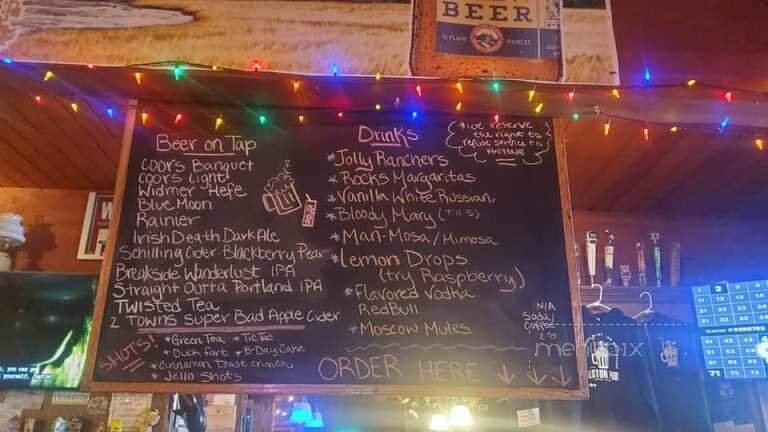 BEER
12 FLUID OUNCES
Beer on Tap
COORS Banquet
COORS Light
Widmer Hefe
Blue Moon
Rainier
Irish Death Dark Ale
Schilling Cider Blackberry Pear
Breakside Wanderlust IPA
Straight Outta Portland IPA
Twisted Tea
2 Towns Super Bad Apple Cider
SHOTS!
*Green Tea *Tic Tac
*Duck fart *B-Day Cake
*Cinnamon toast crunch
*Jello Shots
Drinks
*Jolly Ranchers
*Rocks Margaritas
*Vanilla White Russian
*Bloody Mary (Till 5)
*Man-Mosa/Mimosa
*Lemon Drops
(try Raspberry)
*Flavored Vodka
RedBull
*Moscow Mules
*we reserve
the right to
refuse service to
ANYONE
N/A
Soda/
Coffee
ORDER HERE
menupix